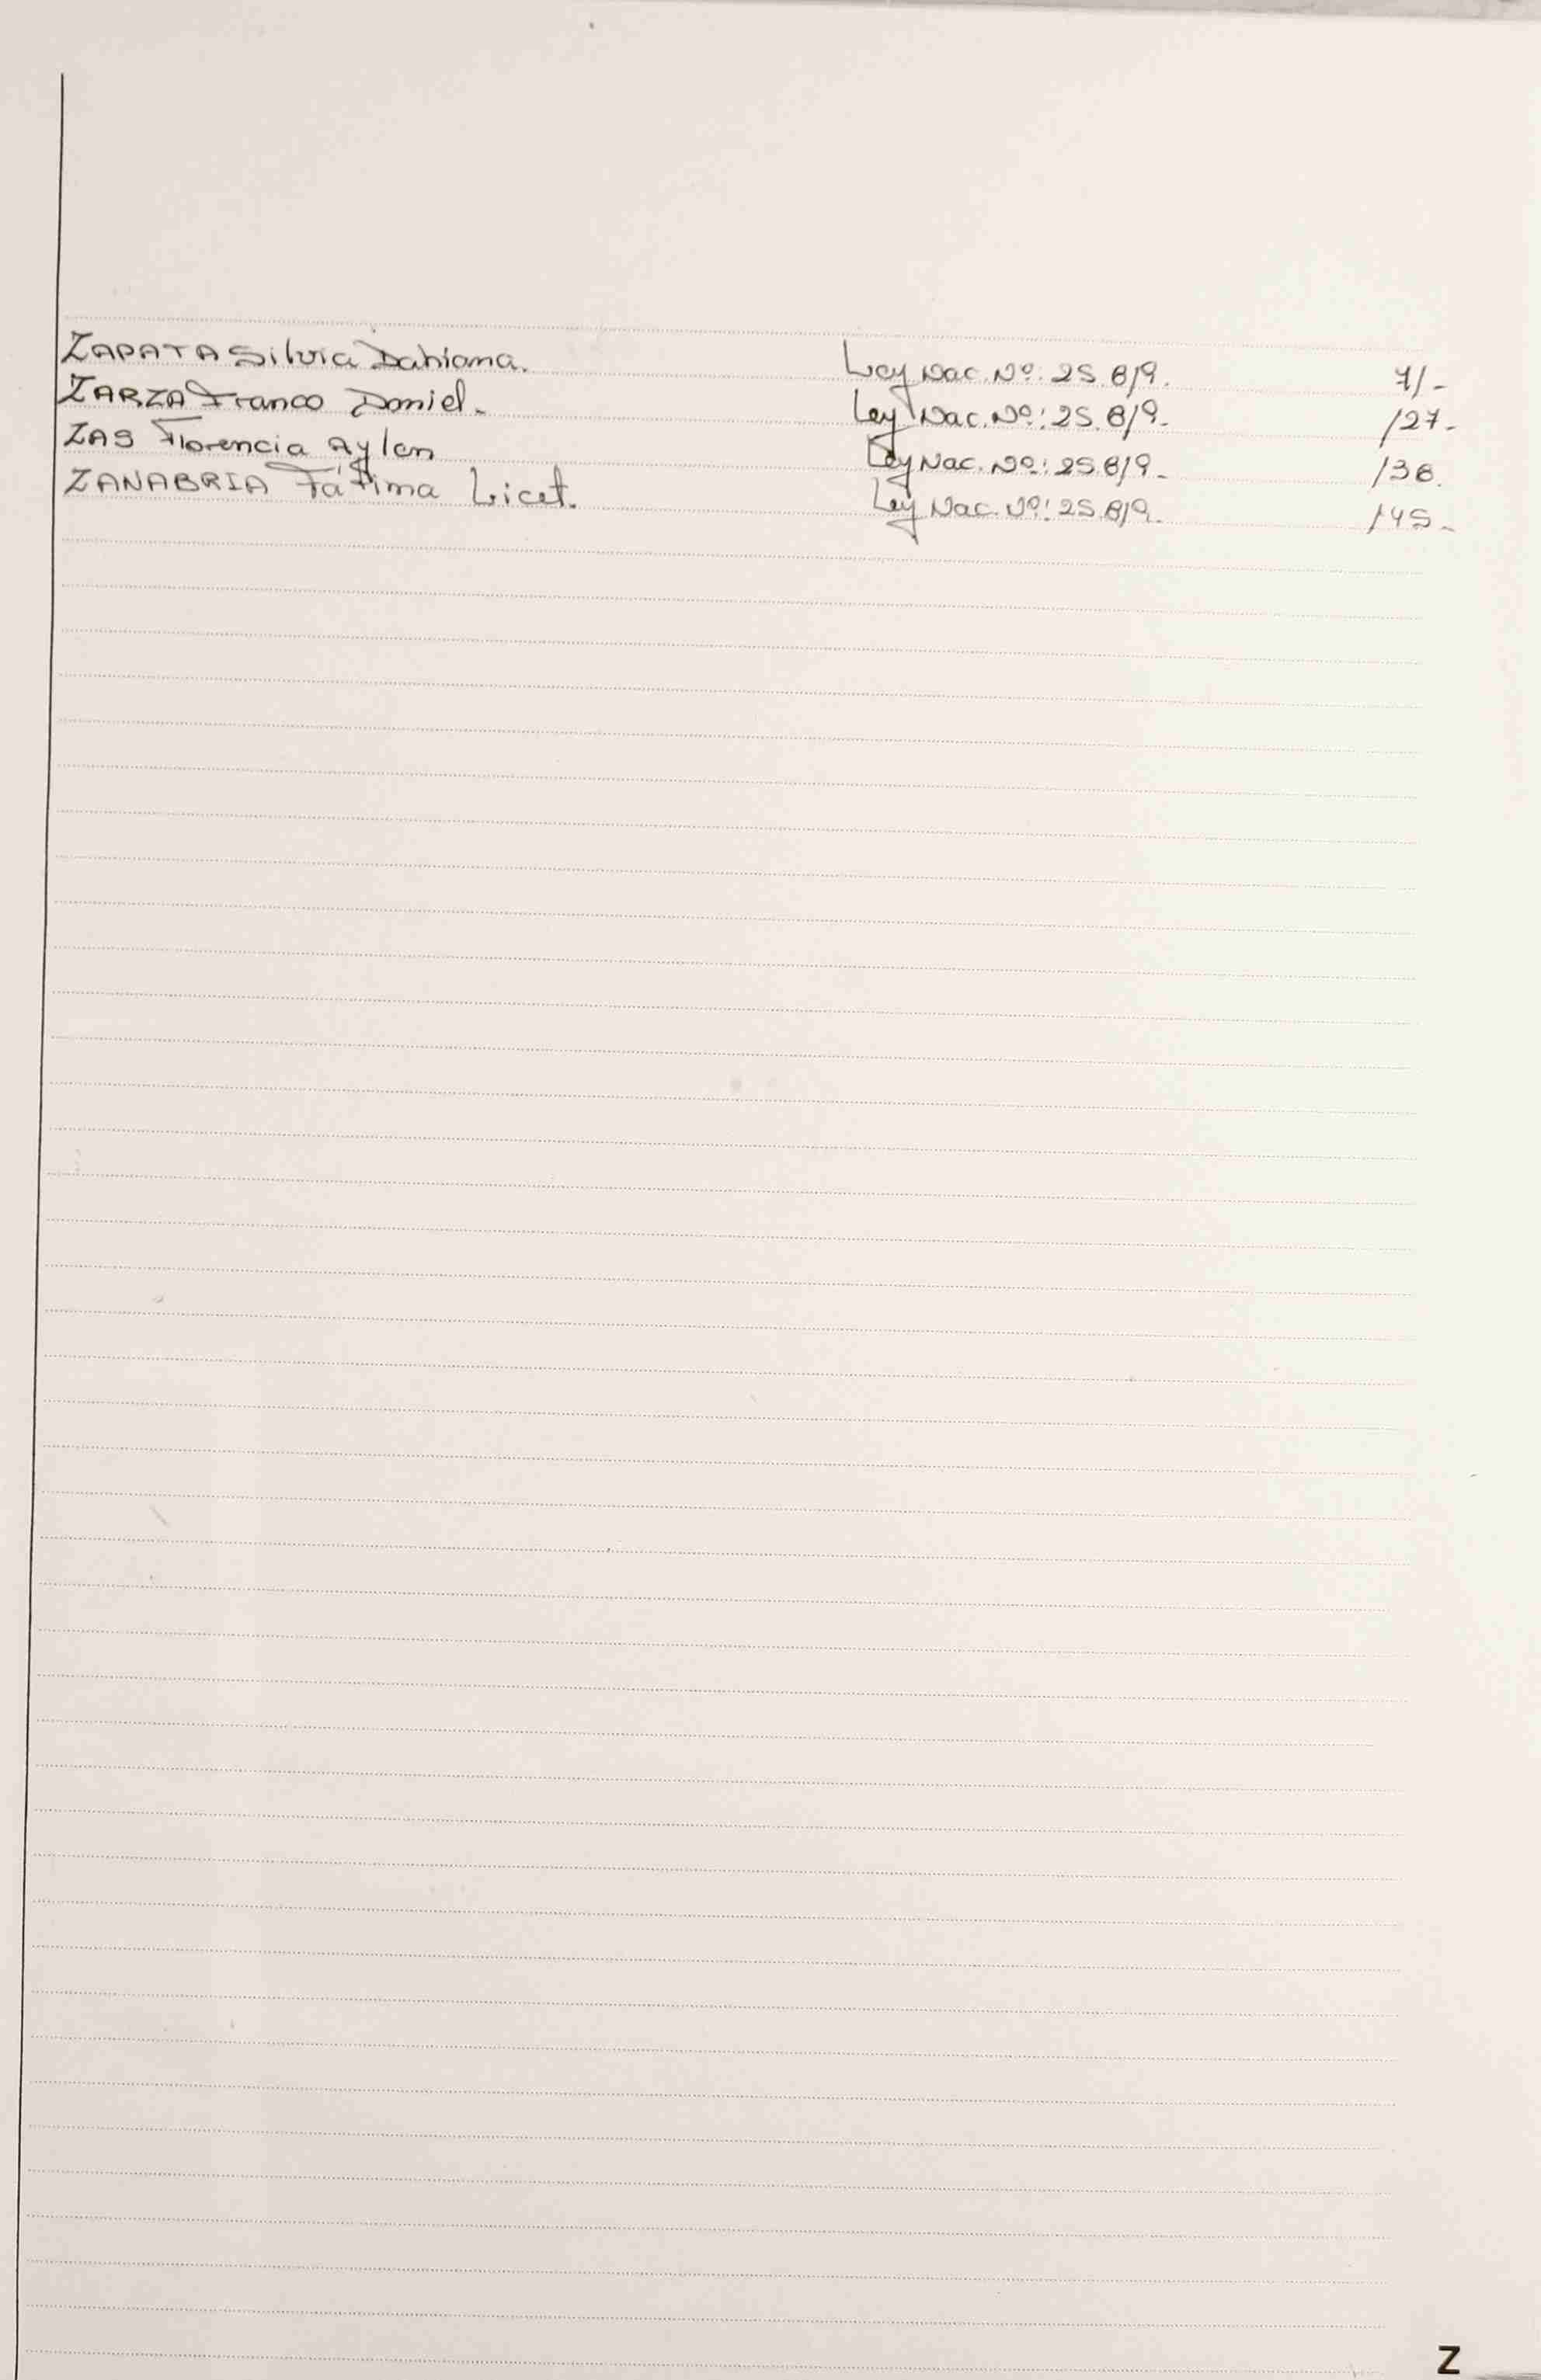 ZAPATA Silvia Dahiana. Ley Nac. Nº: 25.819. 71-
ZARZA Franco Daniel. Ley Nac. Nº: 25.819. 127-
ZAS Florencia Aylen Ley Nac. Nº: 25.819. 138.
ZANABRIA Fátima Licet. Ley Nac. Nº: 25.819. 145-
Z